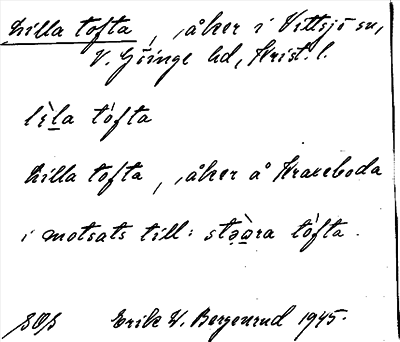 Lilla tofta, åker i Vittsjö sn,
V. Göinge hd, Krist. l.
lɛ̀la tòfta
Lilla tofta, åker å Krakeboda
i motsats till: stəàra tòfta.
SOS Erik W. Bergenrud 1945.